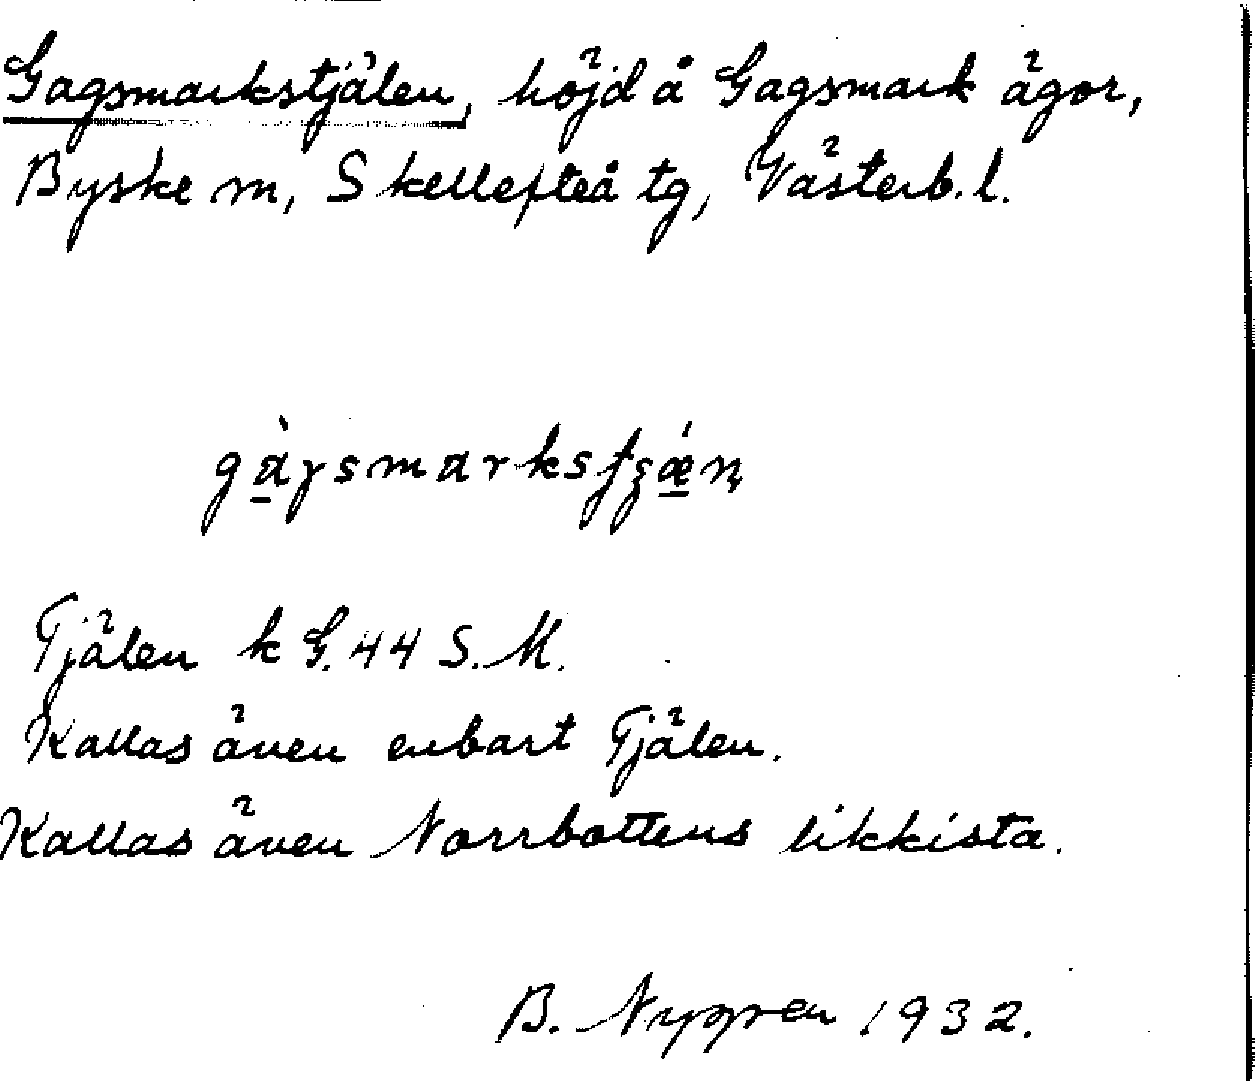 Gagsmarkstjälen, höjd å Gagsmark ägor,
Byske sn, Skellefteå tg, Västerb. l.
Tjälen k G. 44 S. M.
Kallas även enbart Tjälen.
Kallas även Norrbottens likkista.
B. Nygren 1932.